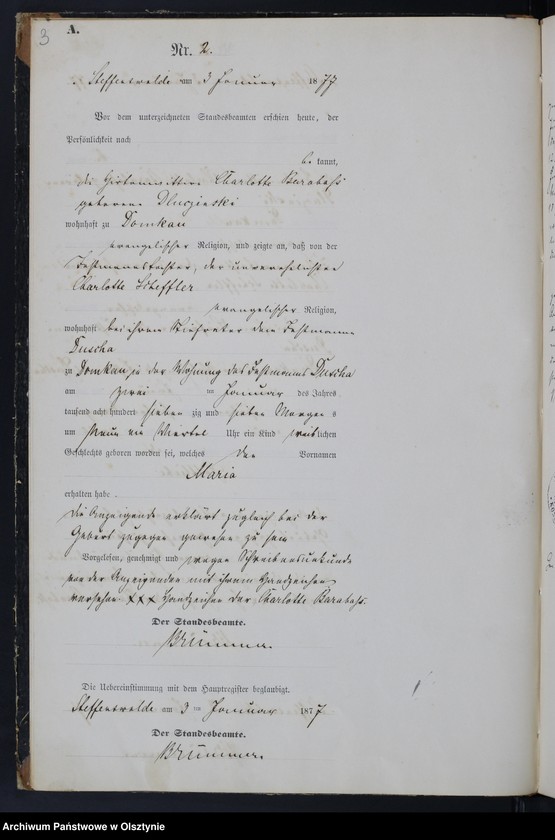 3
A.
Nr. 2.
Steffenswalde am 3 Januar 1877
Vor dem unterzeichneten Standesbeamten erschien heute, der
Persönlichkeit nach
be kannt,
die Charlotte Barabass
geborene
wohnhaft zu Domkau
evangelischer Religion, und zeigte an, daß von der
der unverehelichten
Charlotte Scheffler
evangelischer Religion,
wohnhaft bei ihrem dem
Duscha
zu Domkau in der Wohnung des Duscha
am zwei ten Januar des Jahres
tausend acht hundert sieben zig und sieben Morgen s
um neun ein Viertel Uhr ein Kind weiblichen
Geschlechts geboren worden sei, welches den Vornamen
Marie
erhalten habe.
Die Anzeigende erklärt zugleich bei der
Geburt zugegen gewesen zu sein
Vorgelesen, genehmigt und wegen Schreibensunkunde
von der Anzeigenden mit ihrem Handzeichen
versehen XXX Handzeichen der Charlotte Barabass.
Der Standesbeamte.
Brümmer.
Die Uebereinstimmung mit dem Hauptregister beglaubigt.
Steffenswalde am 3 ten Januar 1877
Der Standesbeamte.
Brümmer.
Archiwum Państwowe w Olsztynie